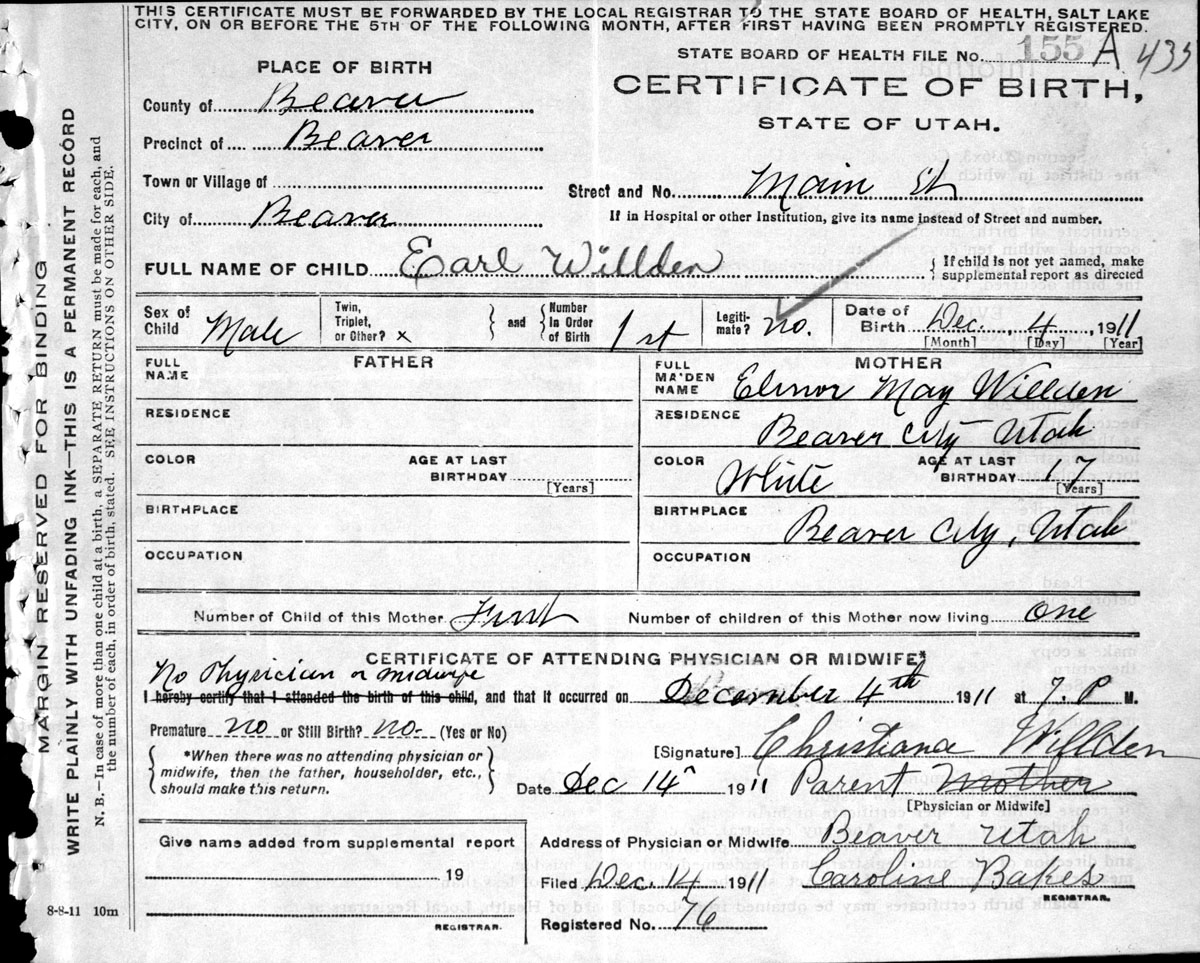 THIS CERTIFICATE MUST BE FORWARDED BY THE LOCAL REGISTRAR TO THE STATE BOARD OF HEALTH, SALT LAKE
CITY, ON OR BEFORE THE 5TH OF THE FOLLOWING MONTH, AFTER FIRST HAVING BEEN PROMPTLY REGISTERED.
STATE BOARD OF HEALTH FILE No. 155 A 435
PLACE OF BIRTH
CERTIFICATE OF BIRTH,
STATE OF UTAH.
County of Beaver
Precinct of Beaver
Town or Village of
Street and No. Main St
City of Beaver
If in Hospital or other Institution, give its name instead of Street and number.
FULL NAME OF CHILD Earl Willden
If child is not yet named, make
supplemental report as directed
Sex of Child Male
Twin, Triplet, or Other? x
and
Number In Order of Birth 1st
Legiti-mate? no.
Date of Birth Dec. 4, 1911
[Month] [Day] [Year]
FATHER
FULL NAME
RESIDENCE
COLOR
AGE AT LAST BIRTHDAY
[Years]
BIRTHPLACE
OCCUPATION
MOTHER
FULL MAIDEN NAME Elinor May Willden
RESIDENCE Beaver City Utah
COLOR White
AGE AT LAST BIRTHDAY 17
[Years]
BIRTHPLACE Beaver City, Utah
OCCUPATION
Number of Child of this Mother First
Number of children of this Mother now living One
CERTIFICATE OF ATTENDING PHYSICIAN OR MIDWIFE*
No Physician or midwife
I hereby certify that I attended the birth of this child, and that it occurred on December 4th 1911 at 7. P M.
Premature no or Still Birth? no. (Yes or No)
*When there was no attending physician or
midwife, then the father, householder, etc.,
should make this return.
[Signature] Christiana Willden
Date Dec 14 1911 Parent Mother
[Physician or Midwife]
Give name added from supplemental report
19
REGISTRAR.
Address of Physician or Midwife Beaver Utah
Filed Dec. 14 1911 Caroline Bakes
REGISTRAR.
Registered No. 76
8-8-11 10m
MARGIN RESERVED FOR BINDING
WRITE PLAINLY WITH UNFADING INK—THIS IS A PERMANENT RECORD
N. B.—In case of more than one child at a birth, a SEPARATE RETURN must be made for each, and
the number of each, in order of birth, stated. SEE INSTRUCTIONS ON OTHER SIDE.